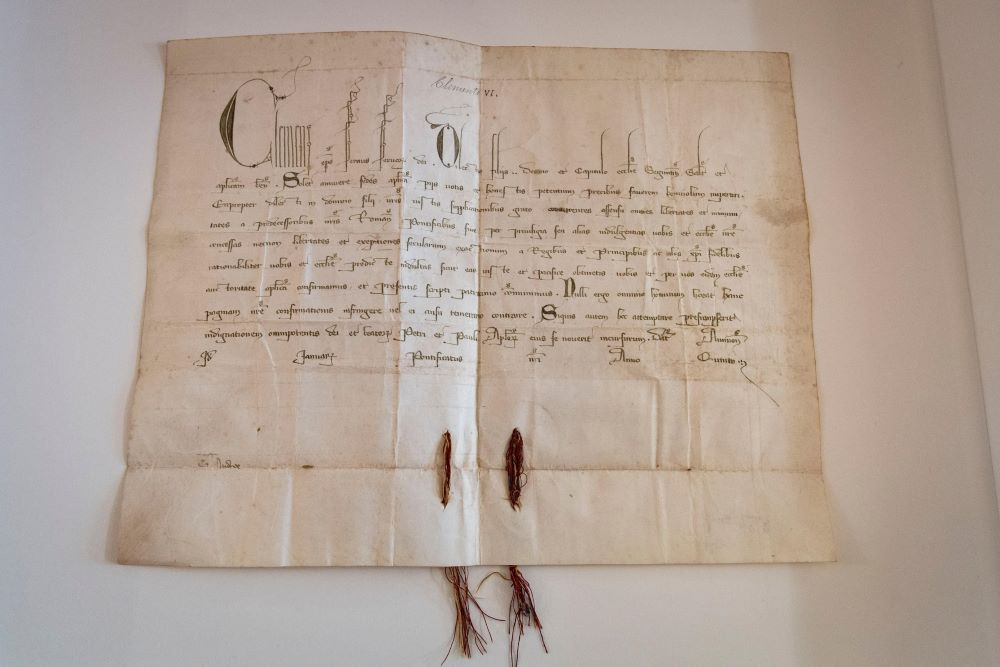 Clemente VI.
Clemens eps servus servoꝝ dei. Dilectis filijs .. Decano et Capitulo ecclie Salt et
aplicam ben. Solet annuere sedes aplica pijs votis et honestis petentium precibus favorem benivolum impertiri.
Eapropter dilecti in domino filij vris iustis supplicationibus grato concurrentes assensu omnes libertates et immuni
tates a predecessoribus nris Roman Pontificibus sive per privilegia seu alias indulgentias vobis et ecclie vre
concessas necnon libertates et exemptiones secularium exactionum a Regibus et Principibus ac alijs xpi fidelibus
rationabiliter vobis et ecclie predicte indultas sicut eas iuste et pacifice obtinetis vobis et per vos eidem ecclie
auctoritate aplica confirmamus et presentis scripti patrocinio communimus. Nulli ergo omnino hominum liceat hanc
paginam nre confirmationis infringere vel ei ausu temerario contraire. Siquis autem hoc attemptare presumpserit
indignationem omnipotentis dei et beatoꝝ Petri et Pauli Aploꝝ eius se noverit incursurum. Dat Avinion
Januarij Pontificatus nri Anno Quinto
Andree